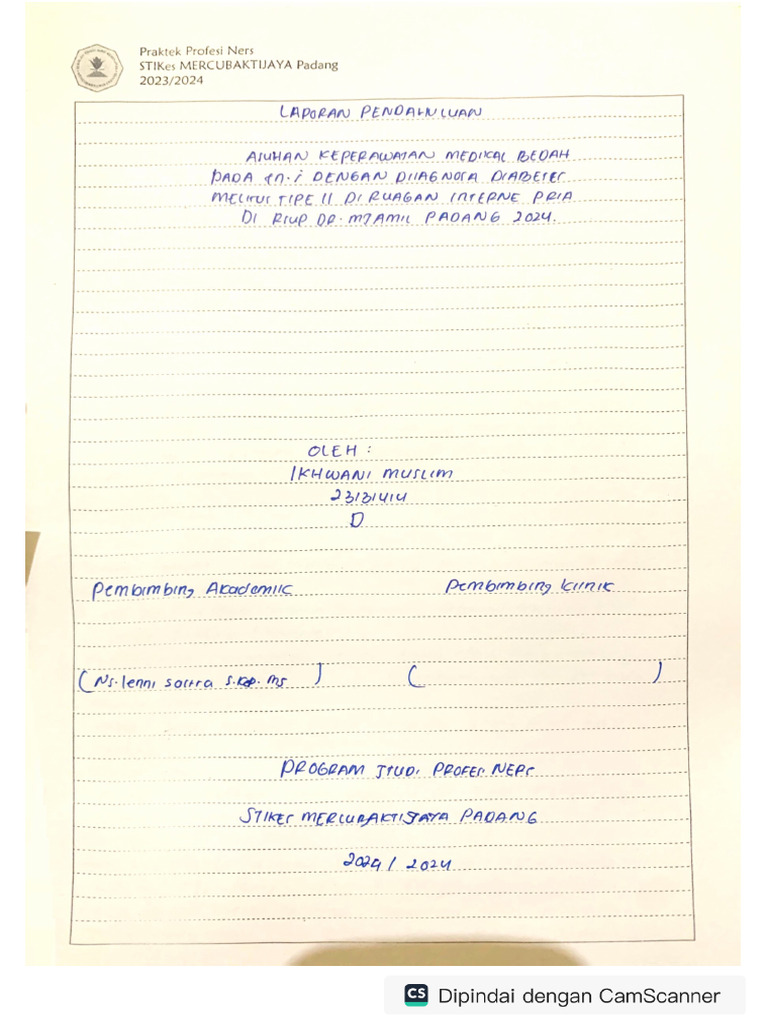 Praktek Profesi Ners
STIKes MERCUBAKTIJAYA Padang
2023/2024
LAPORAN PENDAHULUAN
ASUHAN KEPERAWATAN MEDIKAL BEDAH
PADA tn.i DENGAN DIIAGNOSA DIABETES
MELITUS TIPE II DI RUAGAN INTERNE PRIA
DI RSUP DR. MJAMIL PADANG 2024.
OLEH :
IKHWANI MUSLIM
D
Pembimbing Akademiic
Pembimbing Klinik
(Ns. lenni sastra S.Kep. MS )
( )
PROGRAM STUDI PROFESI NERS
STIKES MERCUBAKTIJAYA PADANG
2024 / 2024
CS Dipindai dengan CamScanner